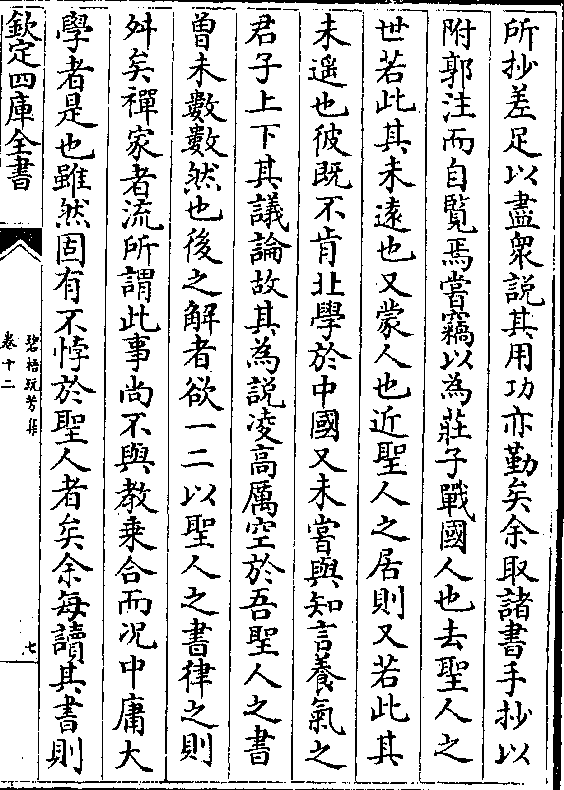 所抄差足以盡衆説其用功亦勤矣余取諸書手抄以
附郭注而自覽焉嘗竊以為莊子戰國人也去聖人之
世若此其未遠也又蒙人也近聖人之居則又若此其
未遥也彼既不肯北學於中國又未嘗與知言養氣之
君子上下其議論故其為説凌高厲空於吾聖人之書
曽未數數然也後之解者欲一二以聖人之書律之則
舛矣禪家者流所謂此事尚不與教乗合而况中庸大
學者是也雖然固有不悖於聖人者矣余每讀其書則
欽定四庫全書
碧梧玩芳集
卷十二
七